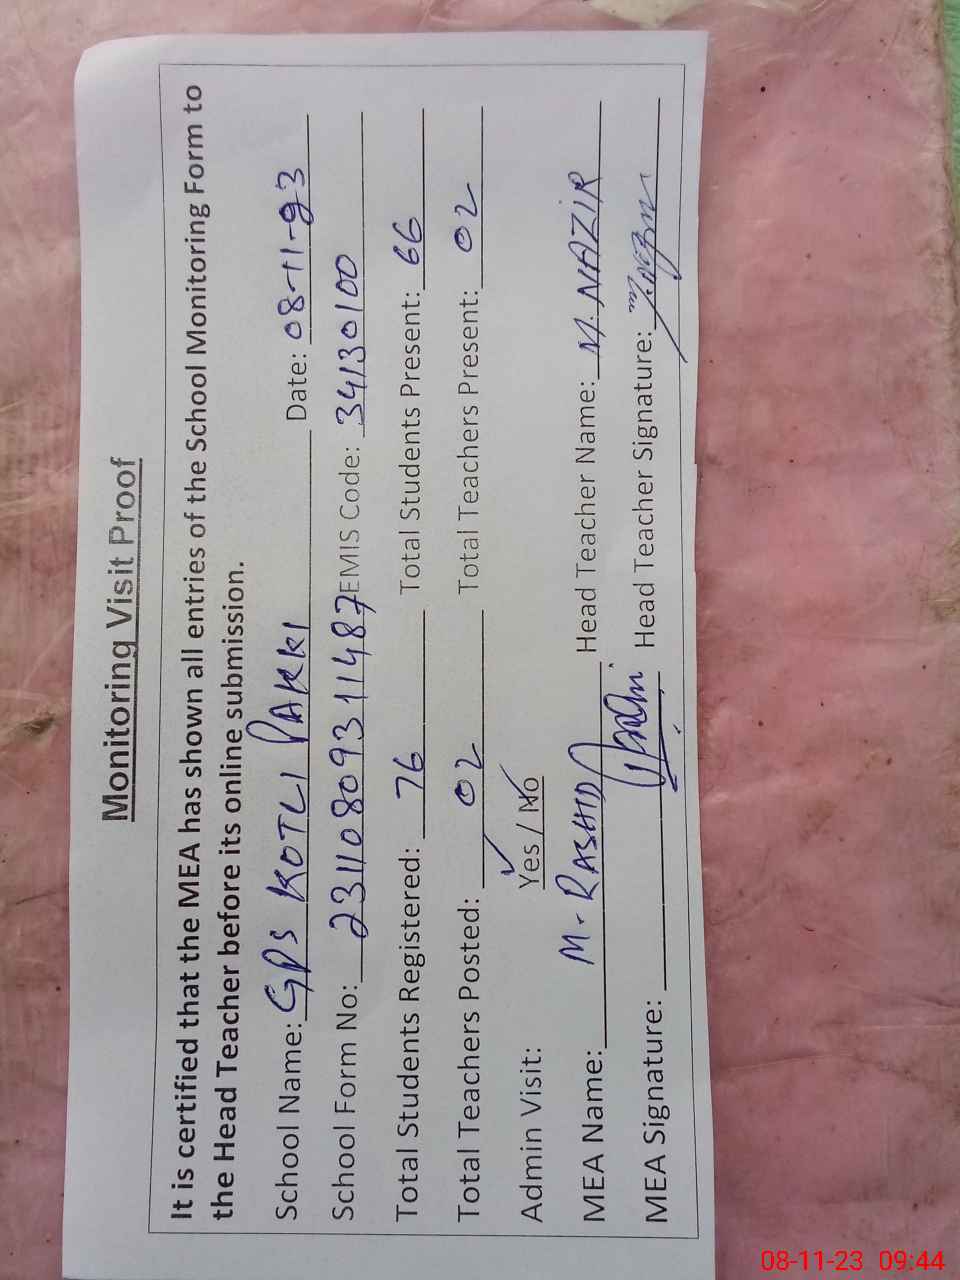 Monitoring Visit Proof
It is certified that the MEA has shown all entries of the School Monitoring Form to
the Head Teacher before its online submission.
School Name: GPS KOTLI PAKKI Date: 08-11-23
School Form No: 23110809311487 EMIS Code: 34130100
Total Students Registered: 76 Total Students Present: 66
Total Teachers Posted: 02 Total Teachers Present: 02
Admin Visit: Yes / No
MEA Name: M. RASHID Head Teacher Name: M. NAZIR
MEA Signature: Head Teacher Signature:
08-11-23 09:44